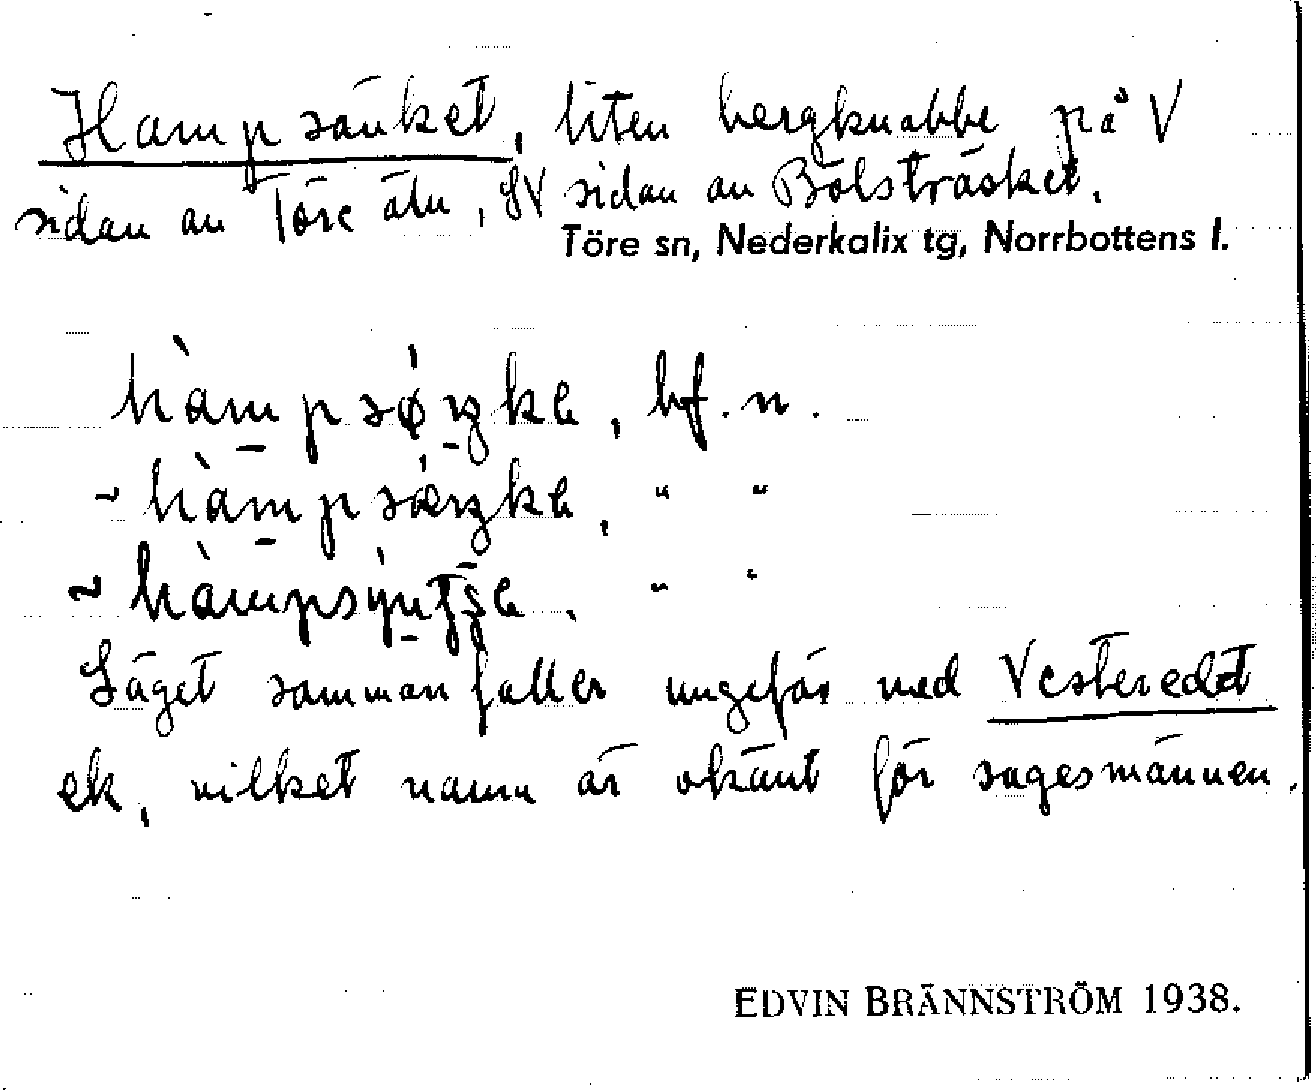 Hampsänket, liten bergknabbe på V
sidan av Töre älv, SV sidan av Bölsträsket.
Töre sn, Nederkalix tg, Norrbottens l.
hàmpsǿŋke, bf. n.
~ hàmpsǽŋke, " "
~ hàmpsýntʃe, " "
Läget sammanfaller ungefär med Vesteredet
ek, vilket namn är okänt för sagesmännen.
EDVIN BRÄNNSTRÖM 1938.